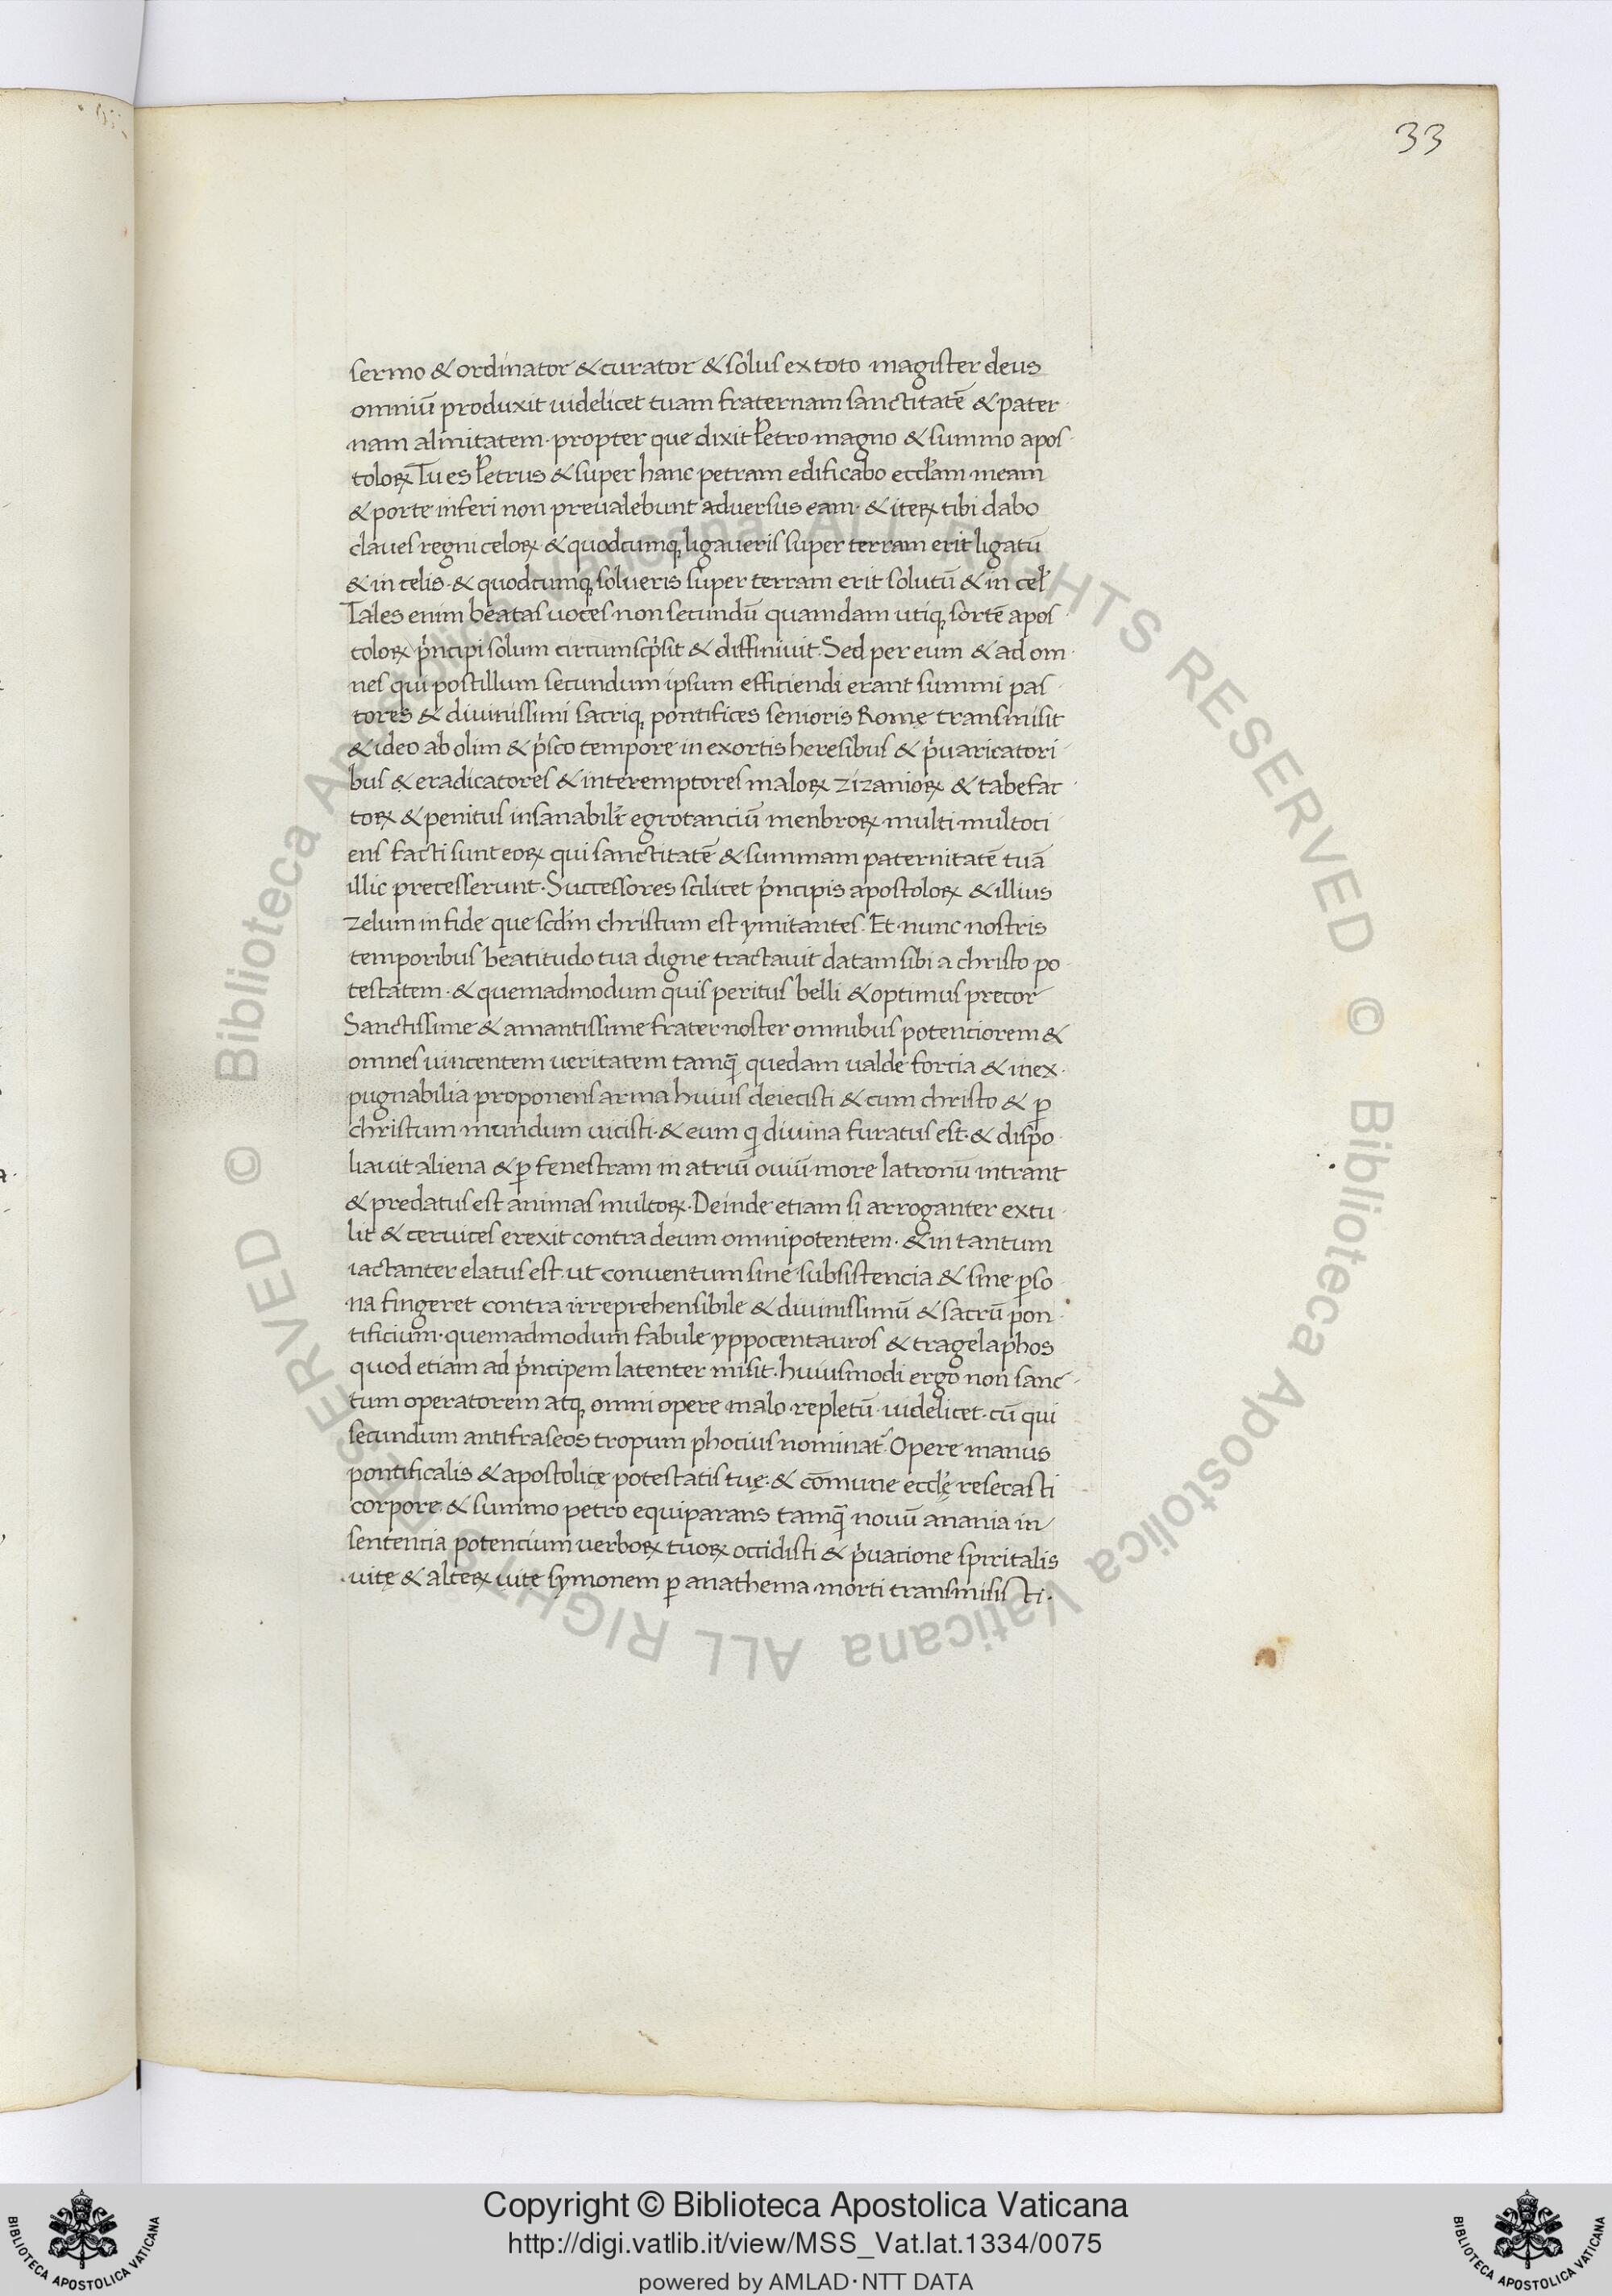 33
sermo & ordinator & curator & solus ex toto magister deus
omniū produxit uidelicet tuam fraternam sanctitatē & pater
nam almitatem · propter que dixit Petro magno & summo apos
tolorꝝ Tu es Petrus & super hanc petram edificabo eccl̄am meam
& porte inferi non preualebunt adversus eam · & iterꝝ tibi dabo
claues regni celorꝝ & quodcumqꝫ ligaueris super terram erit ligatū
& in celis · & quodcumqꝫ solueris super terram erit solutū & in cel̄
Tales enim beatas uoces non secundū quamdam utiqꝫ sortē apos
tolorꝝ p̓ncipi solum circumscp̓sit & diffiniuit. Sed per eum & ad om
nes qui postillum secundum ipsum efficiendi erant summi pas
tores & diuinissimi sacriqꝫ pontifices senioris Romę transmisit
& ideo ab olim & p̓sco tempore in exortis heresibus & p̓uaricatori
bus & eradicatores & interemptores malorꝝ zizaniorꝝ & tabefac
torꝝ & penitus insanabilit̄ egrotanciū menbrorꝝ multi multoci
ens facti sunt eorꝝ qui sanctitatē & summam paternitatē tuā
illic precesserunt · Successores scilicet p̓ncipis apostolorꝝ & illius
zelum in fide que scd̄m christum est ymitantes. Et nunc nostris
temporibus beatitudo tua digne tractauit datam sibi a christo po
testatem · & quemadmodum quis peritus belli & optimus pretor
Sanctissime & amantissime frater noster omnibus potenciorem &
omnes uincentem ueritatem tamq̄ quedam ualde forcia & inex
pugnabilia proponens arma huius deiecisti & cum christo & ꝑ
christum mundum uicisti · & eum qi diuina furatus est · & dispo
liauit aliena & ꝑ fenestram in atriū ouiū more latronū intrant
& predatus est animas multorꝝ · Deinde etiam si arroganter extu
lit & ceruices erexit contra deum omnipotentem · & in tantum
iactanter elatus est ut conuentum sine subsistencia & sine ꝑso
na fingeret contra irreprehensibile & diuinissimū & sacrū pon
tificium · quemadmodum fabule yppocentauros & tragelaphos
quod etiam ad p̓ncipem latenter misit · huiusmodi ergo non sanc
tum operatorem atqꝫ omni opere malo repletū · uidelicet · cū qui
secundum antifraseos tropum phocius nominat᷑. Opere manus
pontificalis & apostolicę potestatis tuę · & cōmune eccl̄ę resecasti
corpore & summo petro equiparans tamq̄ nouū anania in
sentencia potencium uerborꝝ tuorꝝ occidisti & p̓uacione spiritalis
uitę & alterꝝ uite symonem ꝑ anathema morti transmisisti ·
© Biblioteca Apostolica Vaticana ALL RIGHTS RESERVED © Biblioteca Apostolica Vaticana ALL RIGHTS RESERVED
Copyright © Biblioteca Apostolica Vaticana
http://digi.vatlib.it/view/MSS_Vat.lat.1334/0075
powered by AMLAD·NTT DATA
BIBLIOTECA APOSTOLICA VATICANA
BIBLIOTECA APOSTOLICA VATICANA